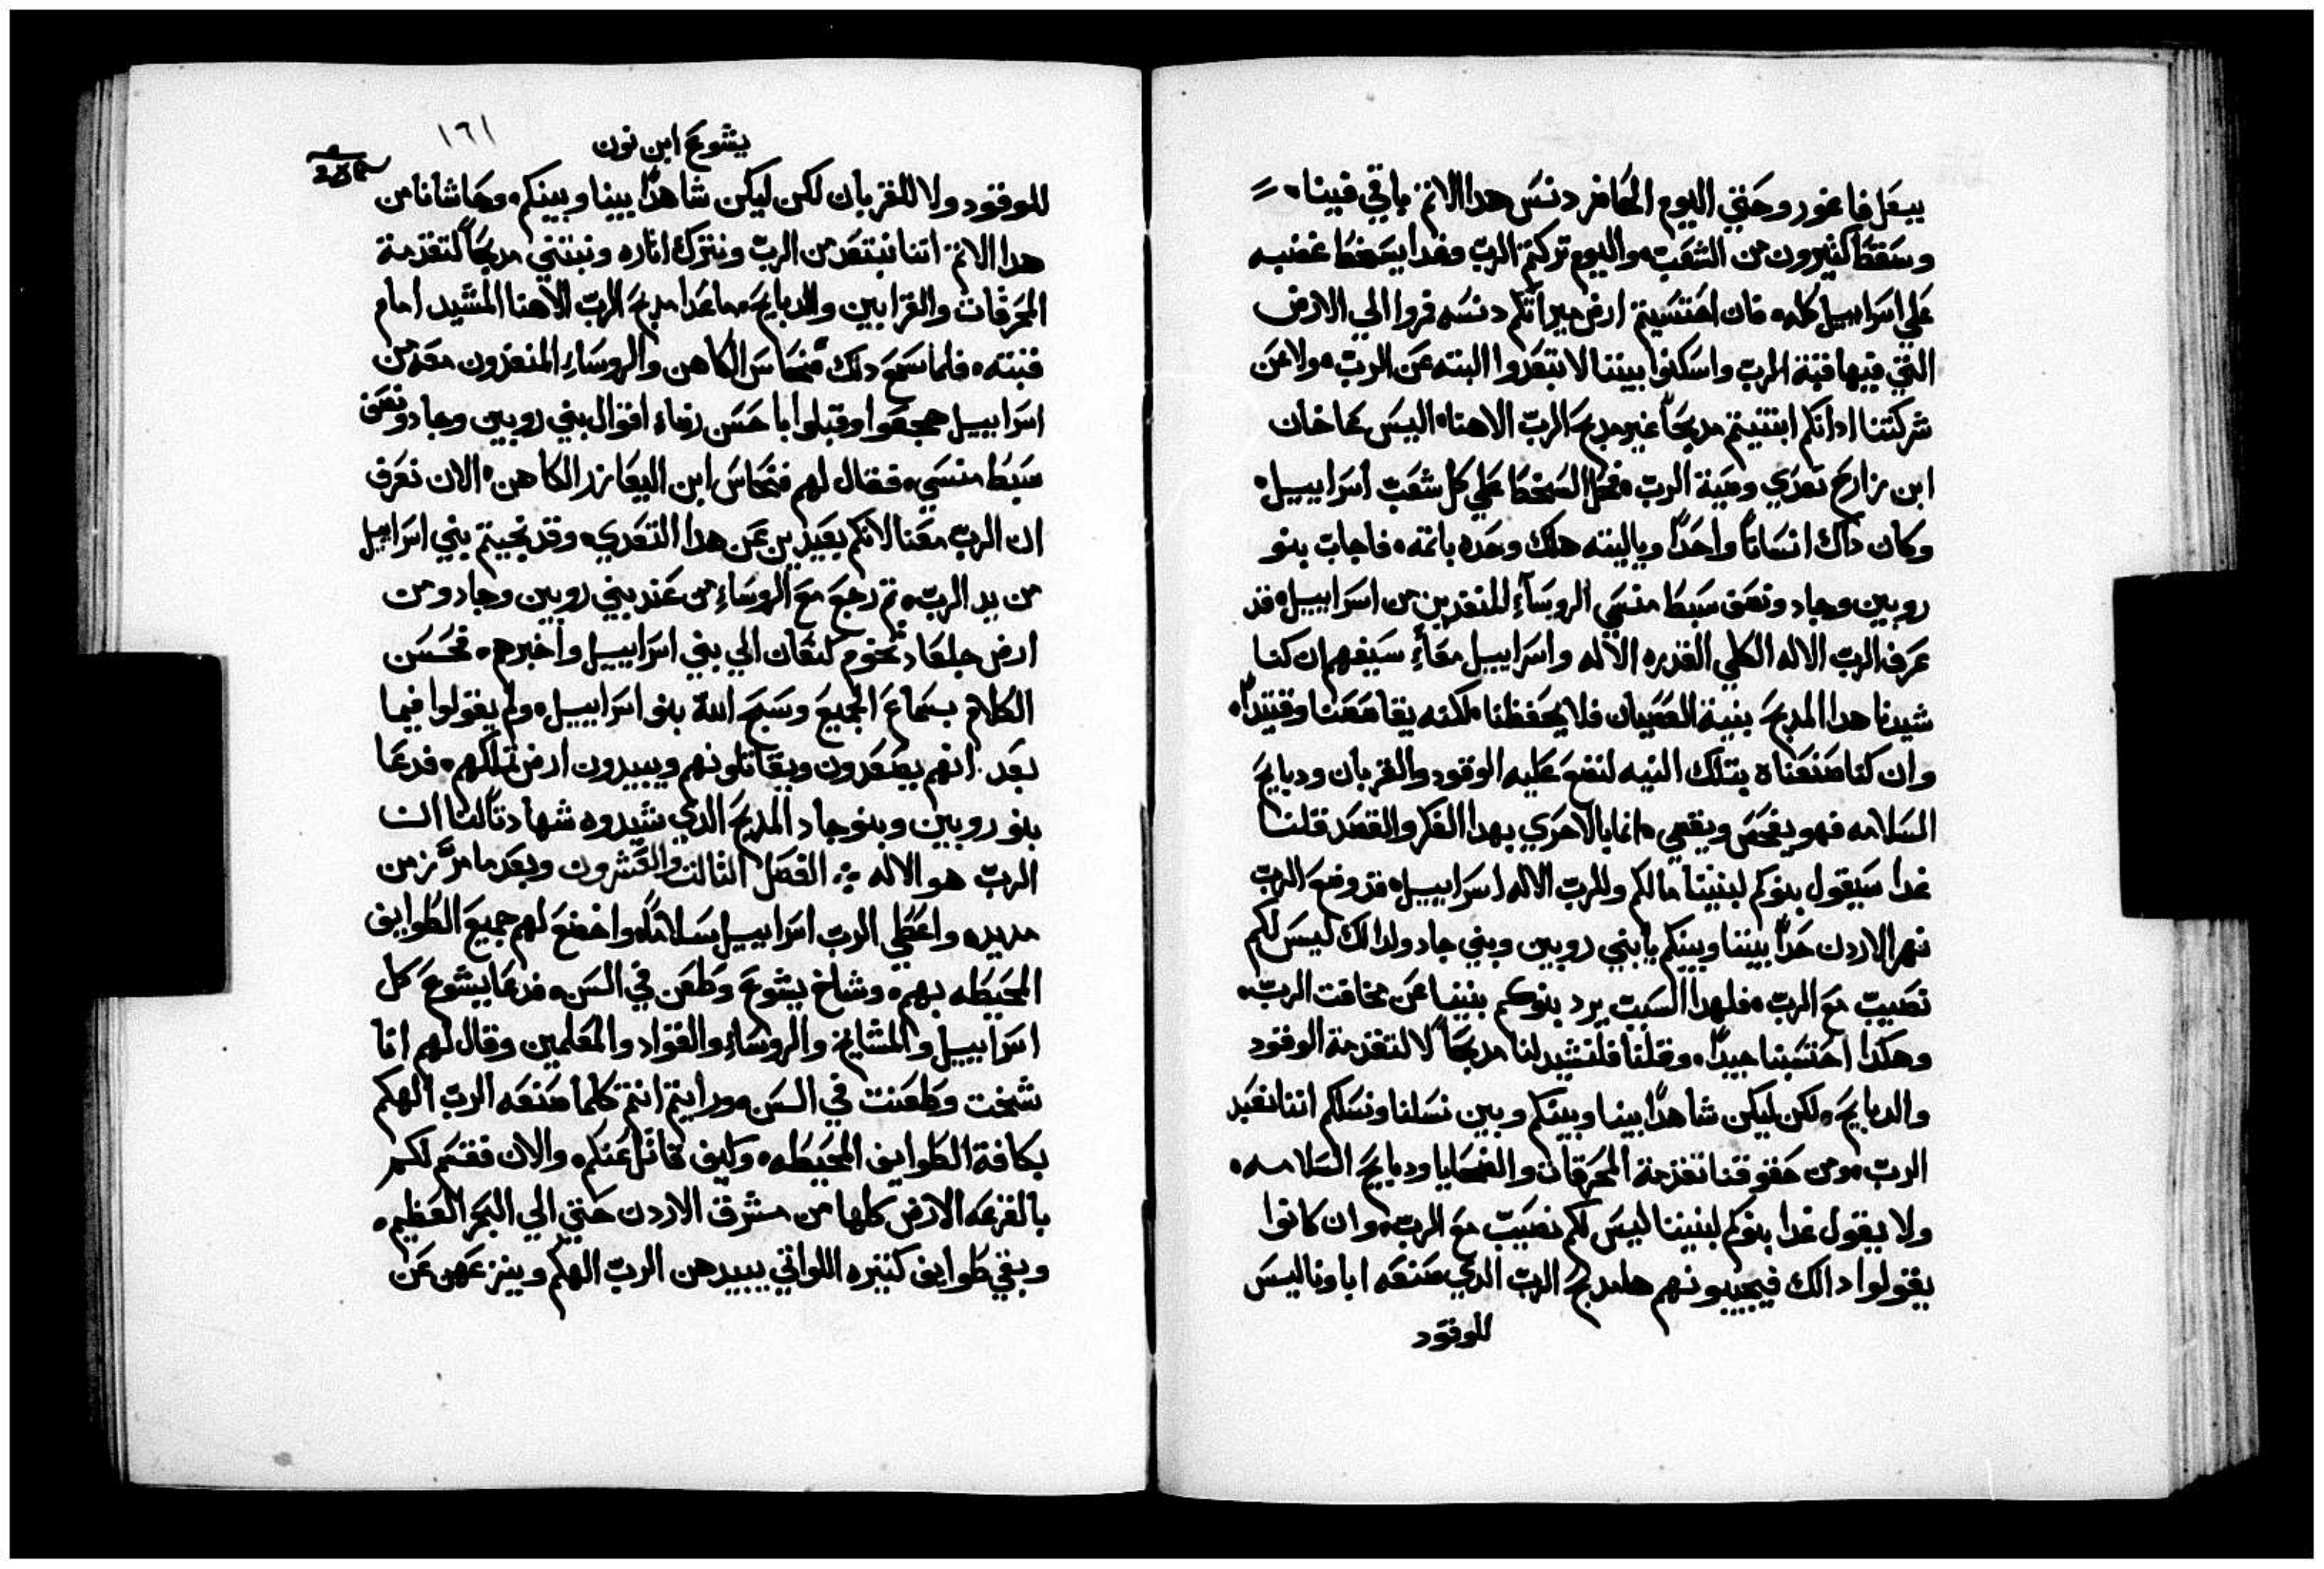 ببعلفاغور وحتي اليوم الحاضر دنس هدا الاتم باقي فينا
وسقط كثيرون من الشعب واليوم تركتم الرب وغدا يسخط غضبه
علي اسراييل كله فان احتسيتم ارض ميراتكم دنسه فروا الي الارض
التي فيها قبة الرب واسكنوا بيننا لا تبتعدوا البته عن الرب ولا عن
شركتنا ادا انكم ابتنيتم مدبحاً غير مدبح الرب الاهنا اليس عاخان
ابن زارح تعدي وصية الرب فحل السخط علي كل شعب اسراييل
وكان داك انساناً واحداً وياليته هلك وحده باتمه فاجاب بنو
روبين وجاد ونصف سبط منسي الروساء المنفدين من اسراييل قد
عرف الرب الاله الكلي القدره الاله واسراييل معاً سيفهم ان كنا
شيدنا هدا المدبح بنية العصيان فلا يحفظنا لكنه يقاصصنا وقتيداً
وان كنا صنعناه بتلك النيه لنضع عليه الوقود والقربان ودبايح
السلامه فهو يفحص ويقضي انما بالاحري بهدا الفكر والقصد قلنا
غدا سيقول بنوكم لبنينا مالكم وللرب الاله اسراييل قد وضع الرب
نهر الاردن حداً بيننا وبينكم يا بني روبين وبني جاد ولدالك ليس لكم
نصيب مع الرب فلهدا السبب يرد بنوكم بنينا عن مخافت الرب
وهكدا احتسبنا جيداً وقلنا فلنشيد لنا مدبحاً لا لتقدمة الوقود
والدبايح لكن ليكن شاهداً بيننا وبينكم وبين نسلنا ونسلكم اننا نعبد
الرب ومن حقوقنا تقدمة المحرقات والضحايا ودبايح السلامه
ولا يقول غدا بنوكم لبنينا ليس لكم نصيب مع الرب وان كانوا
يقولوا دالك فيجيبونهم ها مدبح الرب الدي صنعه اباونا ليس
للوقود
يشوع ابن نون
١٦١
للوقود ولا للقربان لكن ليكن شاهداً بيننا وبينكم وحاشانا من
هدا الاتم اننا نبتعد من الرب ونترك اتاره ونبتني مدبحاً لتقدمة
المحرقات والقرابين والدبايح ما عدا مدبح الرب الاهنا المشيد امام
قبته فلما سمع دلك فنحاس الكاهن والروساء المنفدون معه من
اسراييل جميعوا وقبلوا باحسن رضاء اقوال بني روبين وجاد ونصف
سبط منسي فقال لهم فنحاس ابن اليعازر الكاهن الان نعرف
ان الرب معنا لانكم بعيدين عن هدا التعدي وقد نجيتم بني اسراييل
من يد الرب تم رجع مع الروساء من عند بني روبين وجاد ومن
ارض جلعاد تخوم كنعان الي بني اسراييل واخبرهم فحسن
الكلام بسماع الجميع وسبح الله بنو اسراييل ولم يقولوا فيما
بعد انهم يصعدون ويقاتلونهم ويبيدون ارض تملكهم فدعا
بنو روبين وبنو جاد المدبح الدي شيدوه شهادتاً لنا ان
الرب هو الاله الفصل التالت والعشرون وبعد ما مر زمن
مديد واعطي الرب اسراييل سلامه واخضع لهم جميع الطوايف
المحيطه بهم وشاخ يشوع وطعن في السن فدعا يشوع كل
اسراييل والمشايخ والروساء والقواد والمعلمين وقال لهم انا
شخت وطعنت في السن ورايتم انتم كلما صنعه الرب الهكم
بكافة الطوايف المحيطه وكيف قاتل عنكم والان فقسم لكم
بالقرعه الارض كلها من مشرق الاردن حتي الي البحر العظيم
وبقي طوايف كتيره اللواتي يبيدهن الرب الهكم وينزعهن عن